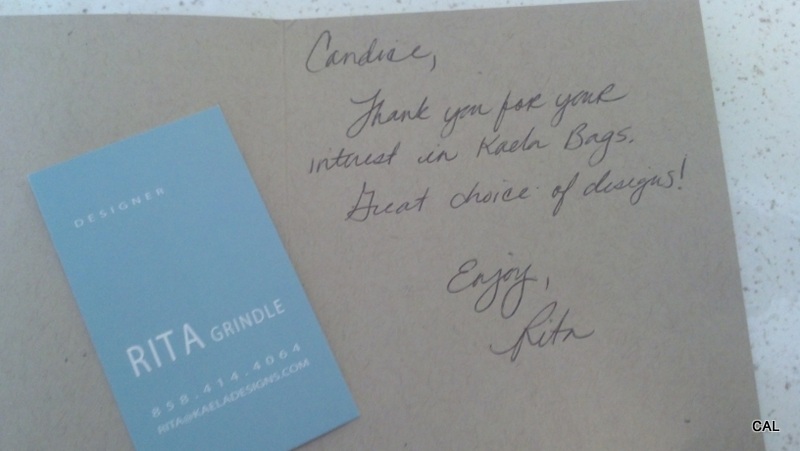 Candice,
Thank you for your
interest in Kaela Bags.
Great choice of designs!
Enjoy,
Rita
DESIGNER
RITA GRINDLE
858.414.4064
RITA@KAELADESIGNS.COM
CAL